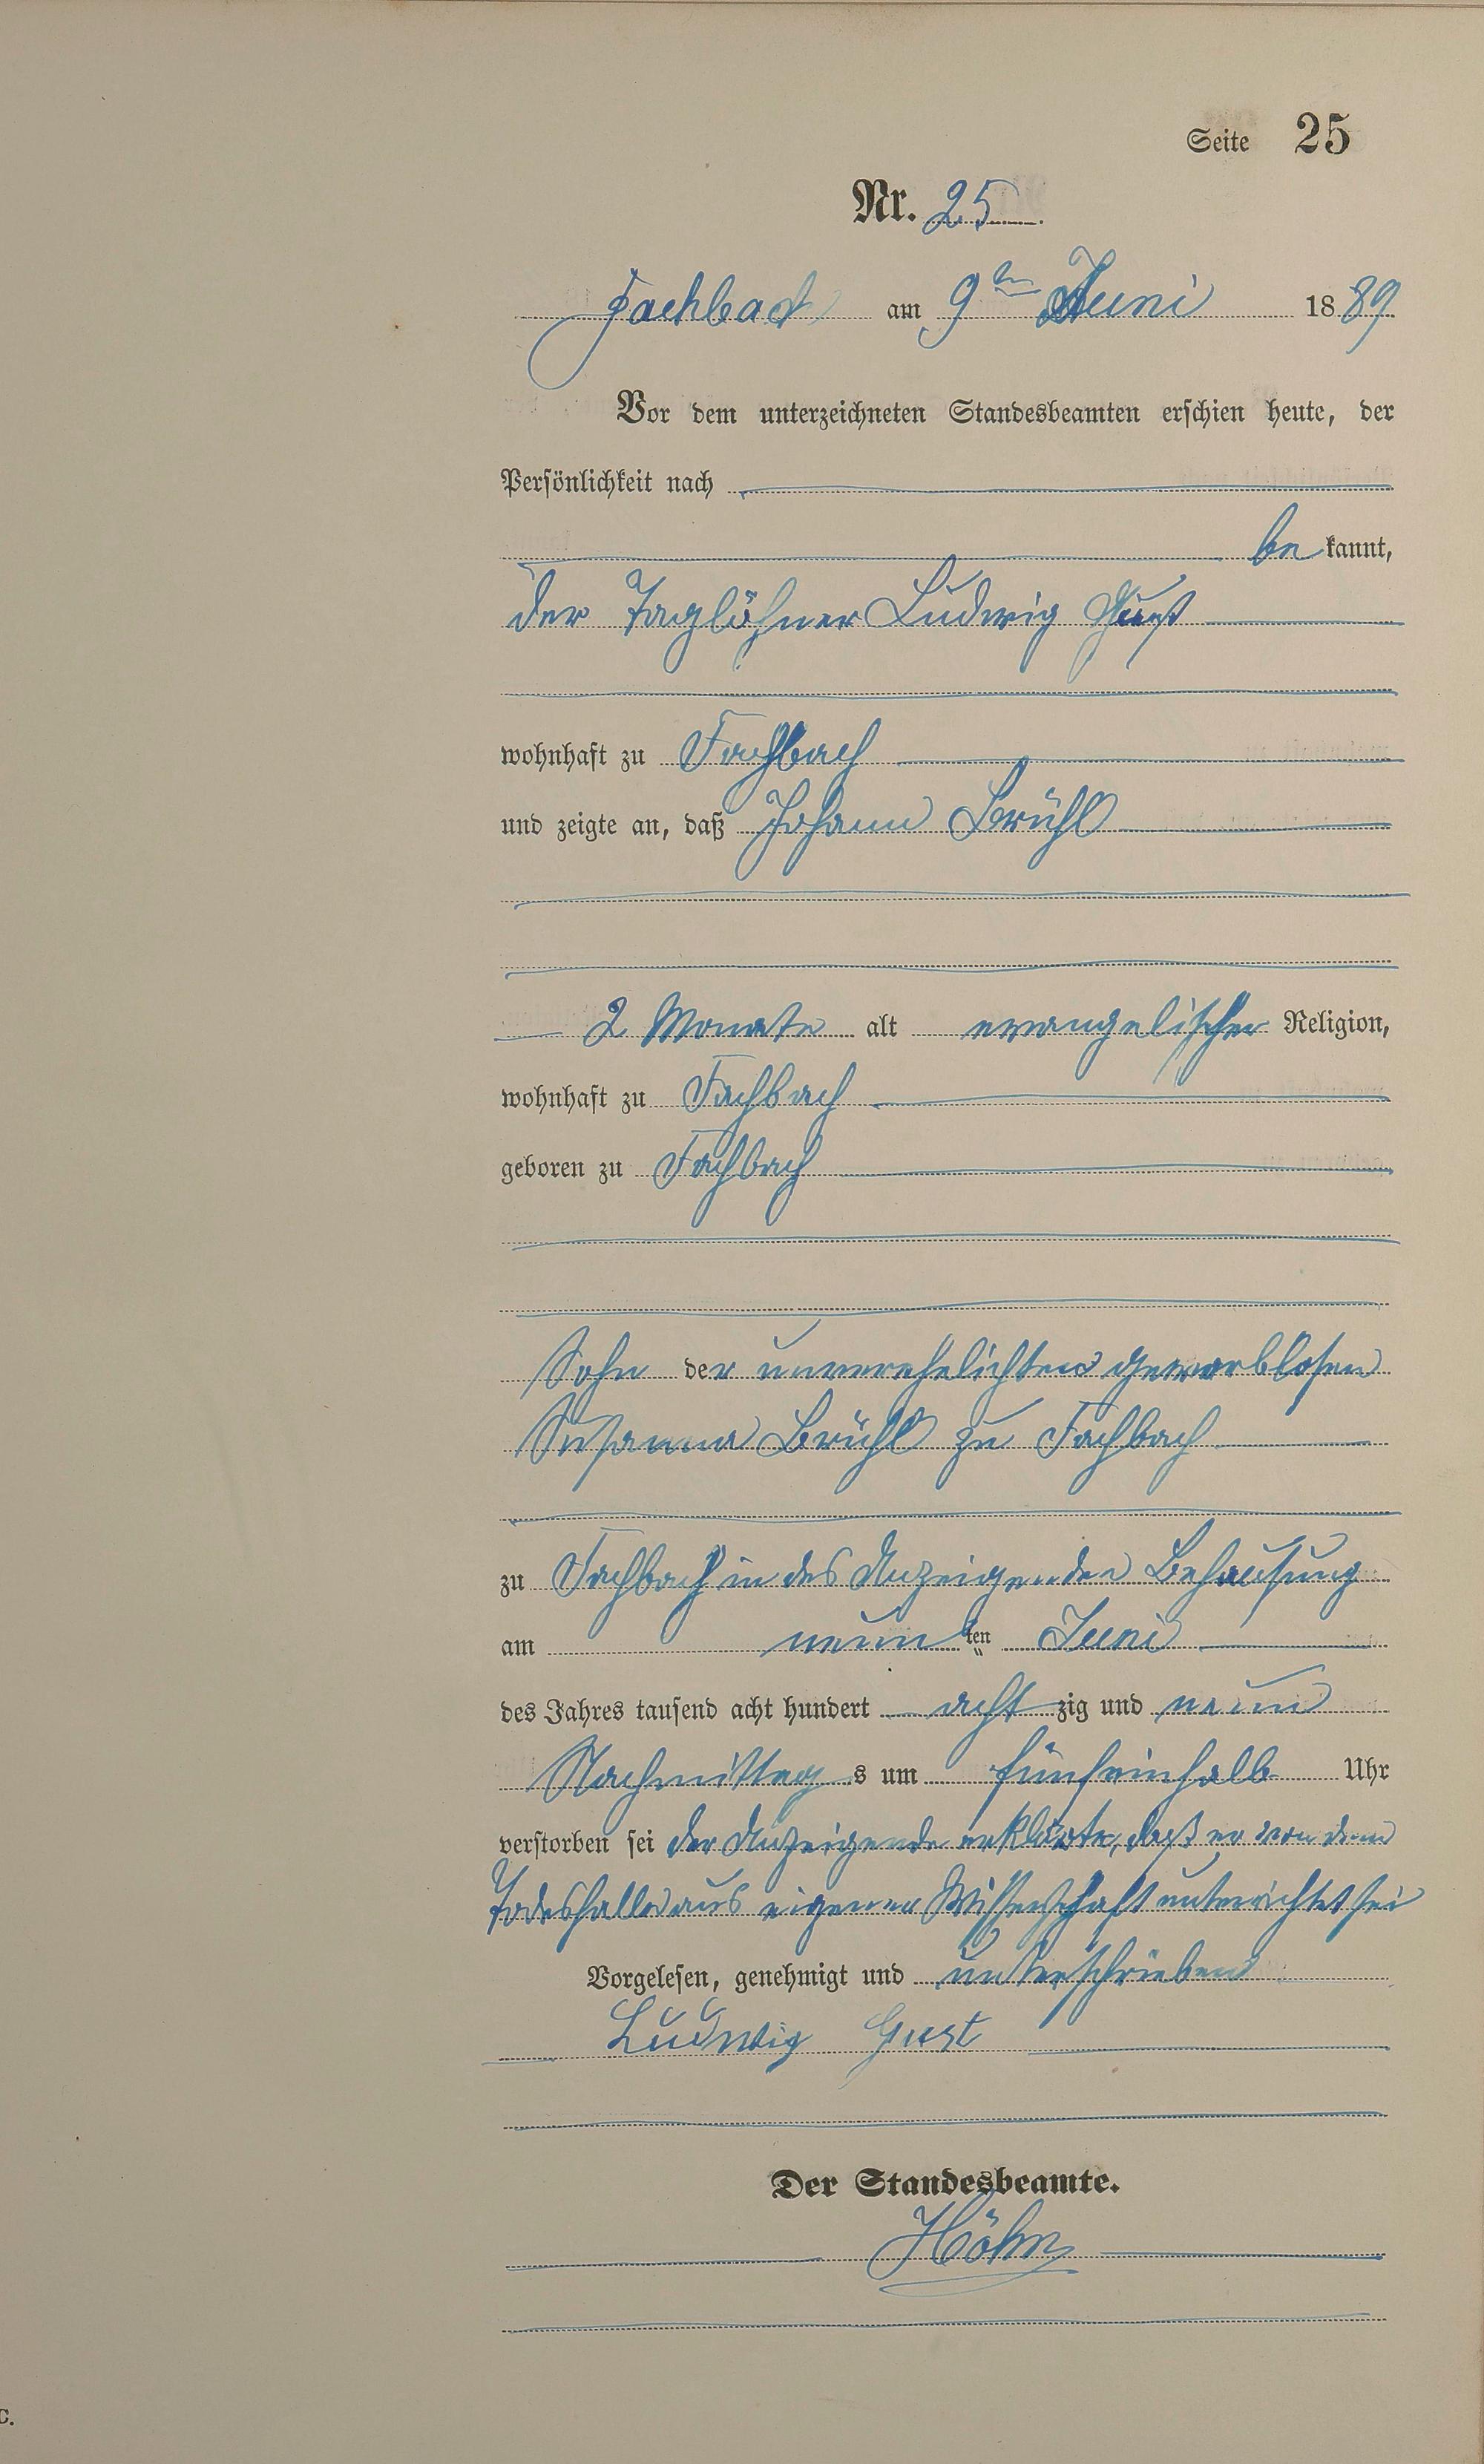 Seite 25
Nr. 25
Fachbach am 9ten Juni 1889
Vor dem unterzeichneten Standesbeamten erschien heute, der
Persönlichkeit nach
be kannt,
der Taglöhner Ludwig Gust
wohnhaft zu Fachbach
und zeigte an, daß Johann Brühl
2 Monate alt evangelischer Religion,
wohnhaft zu Fachbach
geboren zu Fachbach
Sohn der unverehelichten gewerblosen
Susanna Brühl zu Fachbach
zu Fachbach in des Anzeigenden Behausung
am neun ten Juni
des Jahres tausend acht hundert acht zig und neun
Nachmittag s um fünfeinhalb Uhr
verstorben sei der Anzeigende erklärte, daß er von dem
Todesfalle aus eigener Wissenschaft unterrichtet sei
Vorgelesen, genehmigt und unterschrieben
Ludwig Gust
Der Standesbeamte.
Höhn
C.